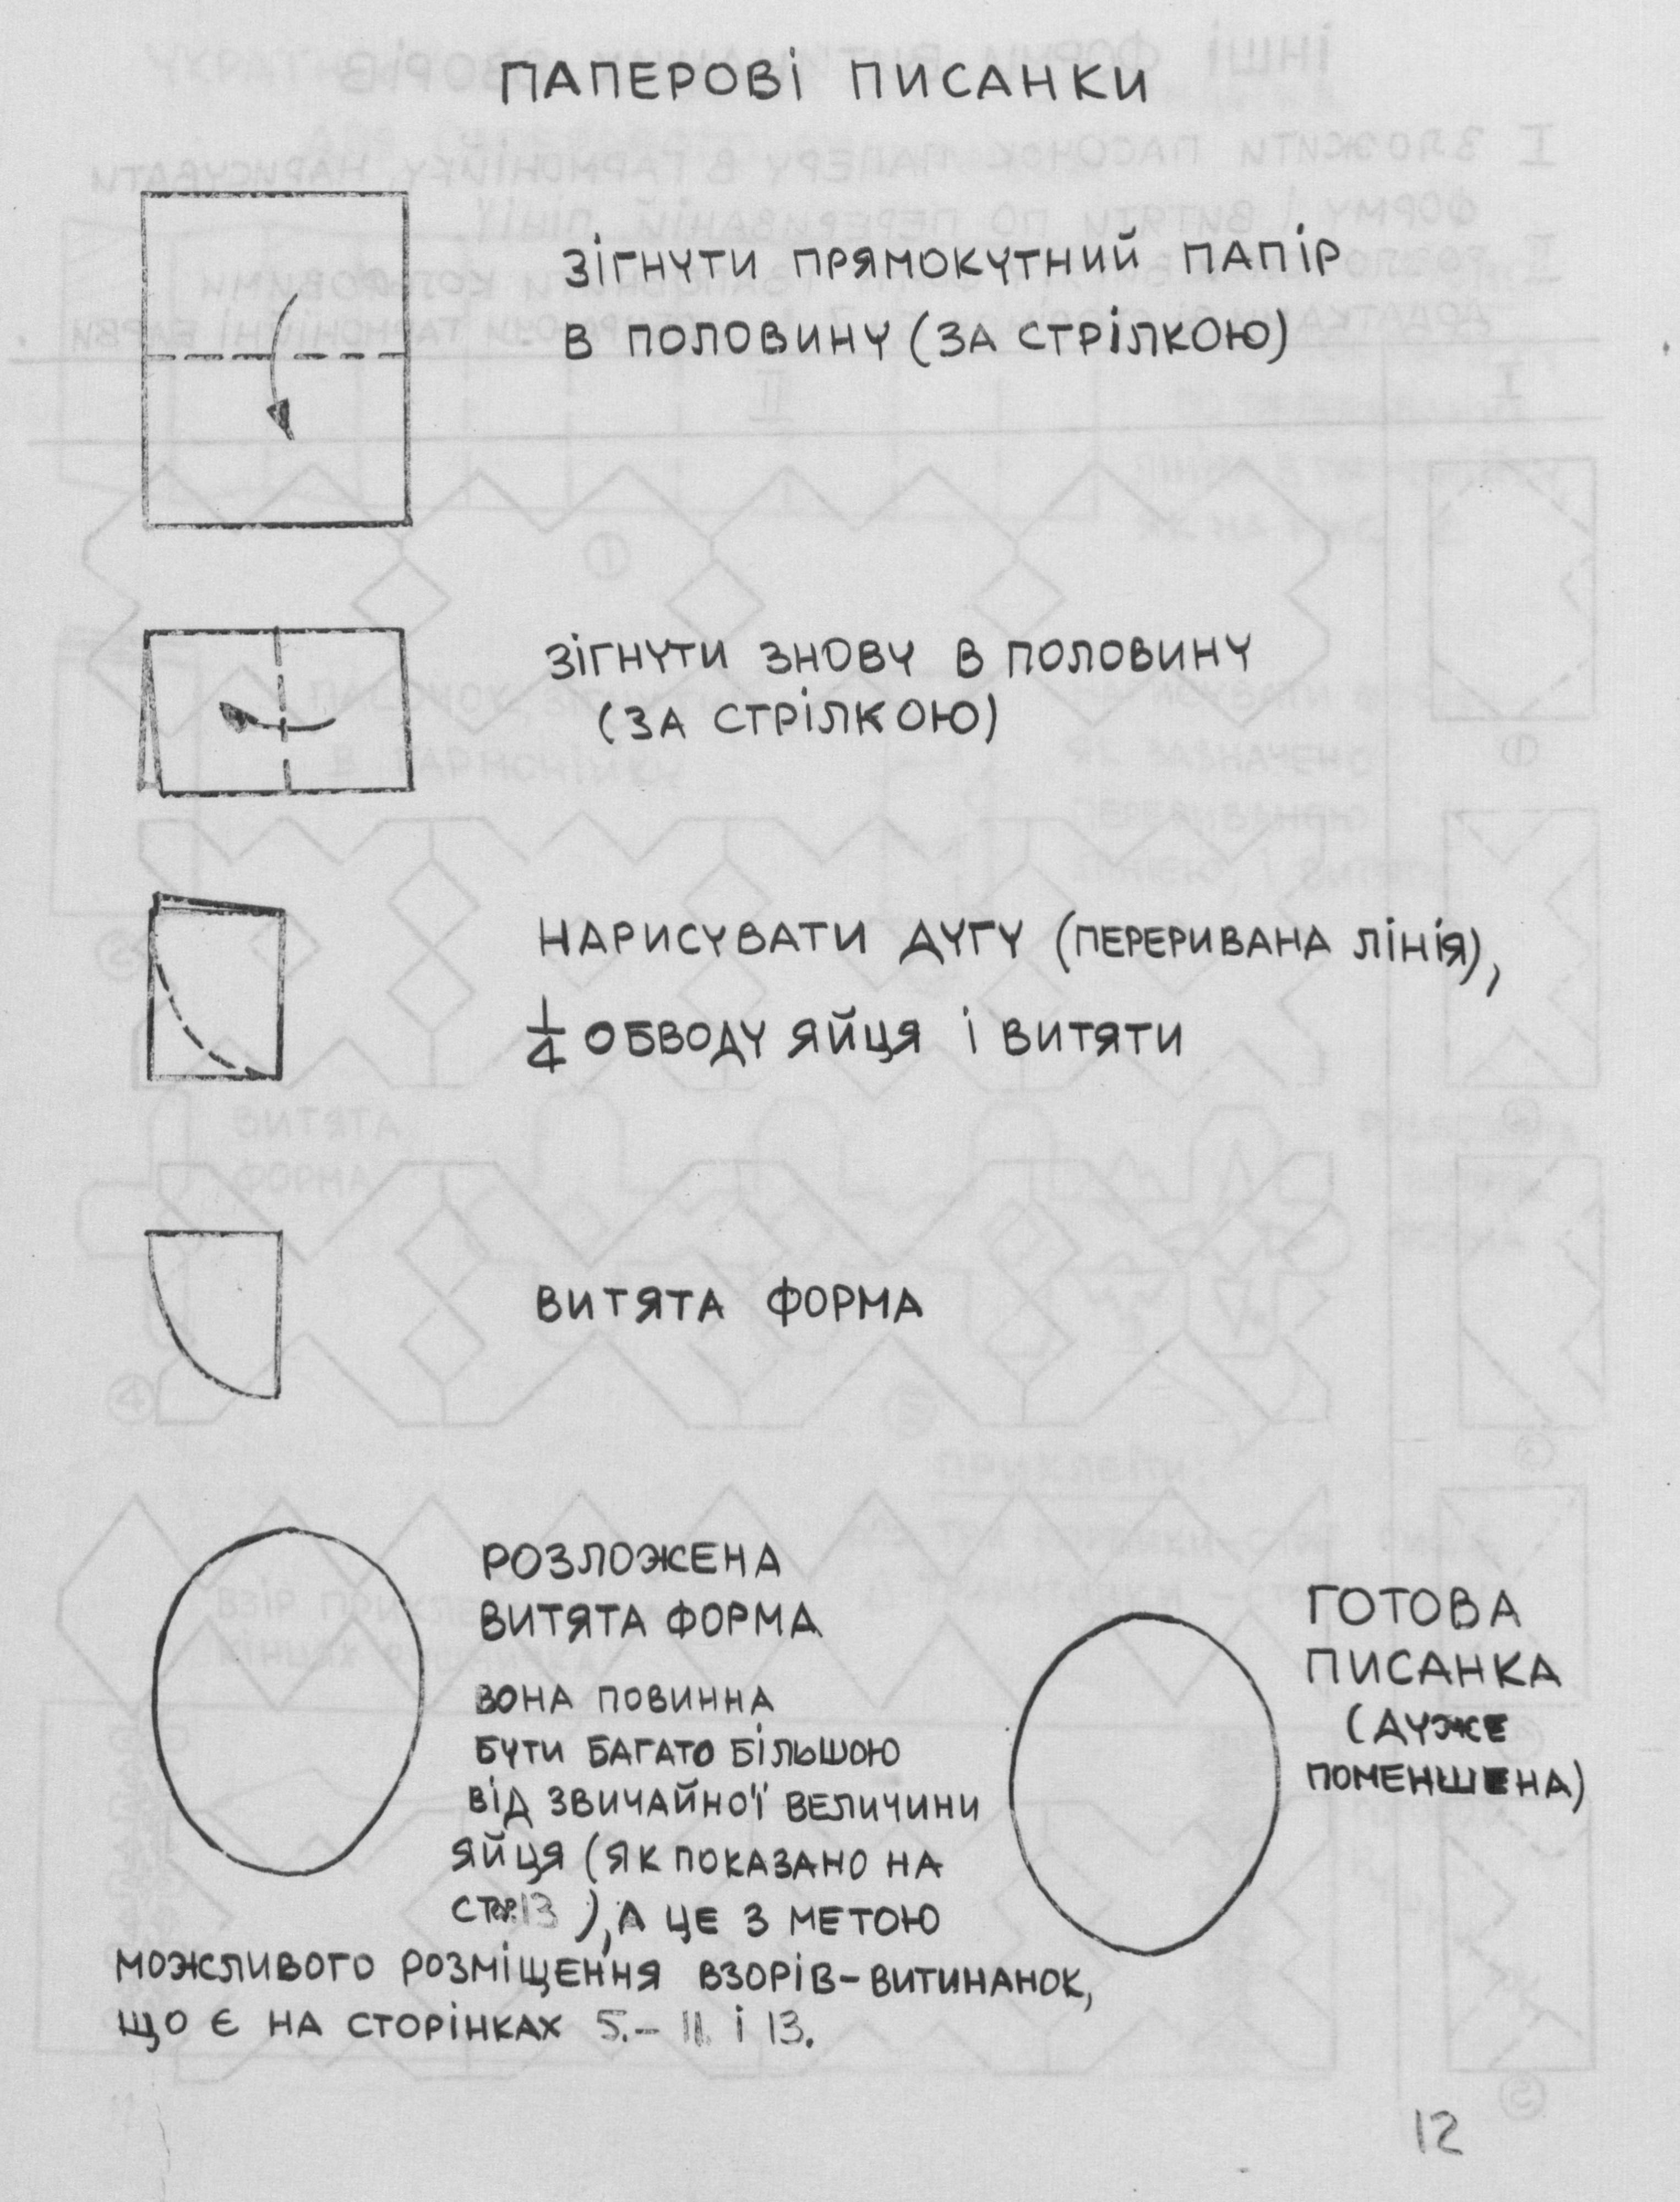 ПАПЕРОВІ ПИСАНКИ
ЗІГНУТИ ПРЯМОКУТНИЙ ПАПІР
В ПОЛОВИНУ (ЗА СТРІЛКОЮ)
ЗІГНУТИ ЗНОВУ В ПОЛОВИНУ
(ЗА СТРІЛКОЮ)
НАРИСУВАТИ ДУГУ (ПЕРЕРИВАНА ЛІНІЯ),
1/4 ОБВОДУ ЯЙЦЯ І ВИТЯТИ
ВИТЯТА ФОРМА
РОЗЛОЖЕНА
ВИТЯТА ФОРМА
ВОНА ПОВИННА
БУТИ БАГАТО БІЛЬШОЮ
ВІД ЗВИЧАЙНОЇ ВЕЛИЧИНИ
ЯЙЦЯ (ЯК ПОКАЗАНО НА
СТОР. 13 ), А ЦЕ З МЕТОЮ
МОЖЛИВОГО РОЗМІЩЕННЯ ВЗОРІВ-ВИТИНАНОК,
ЩО Є НА СТОРІНКАХ 5.- 11. І 13.
ГОТОВА
ПИСАНКА
(ДУЖЕ
ПОМЕНШЕНА)
12